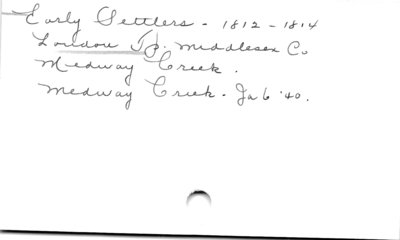 Early Settlers - 1812 - 1814
London Tp. Middlesex Co
Medway Creek.
Medway Creek - Ja 6 '40.